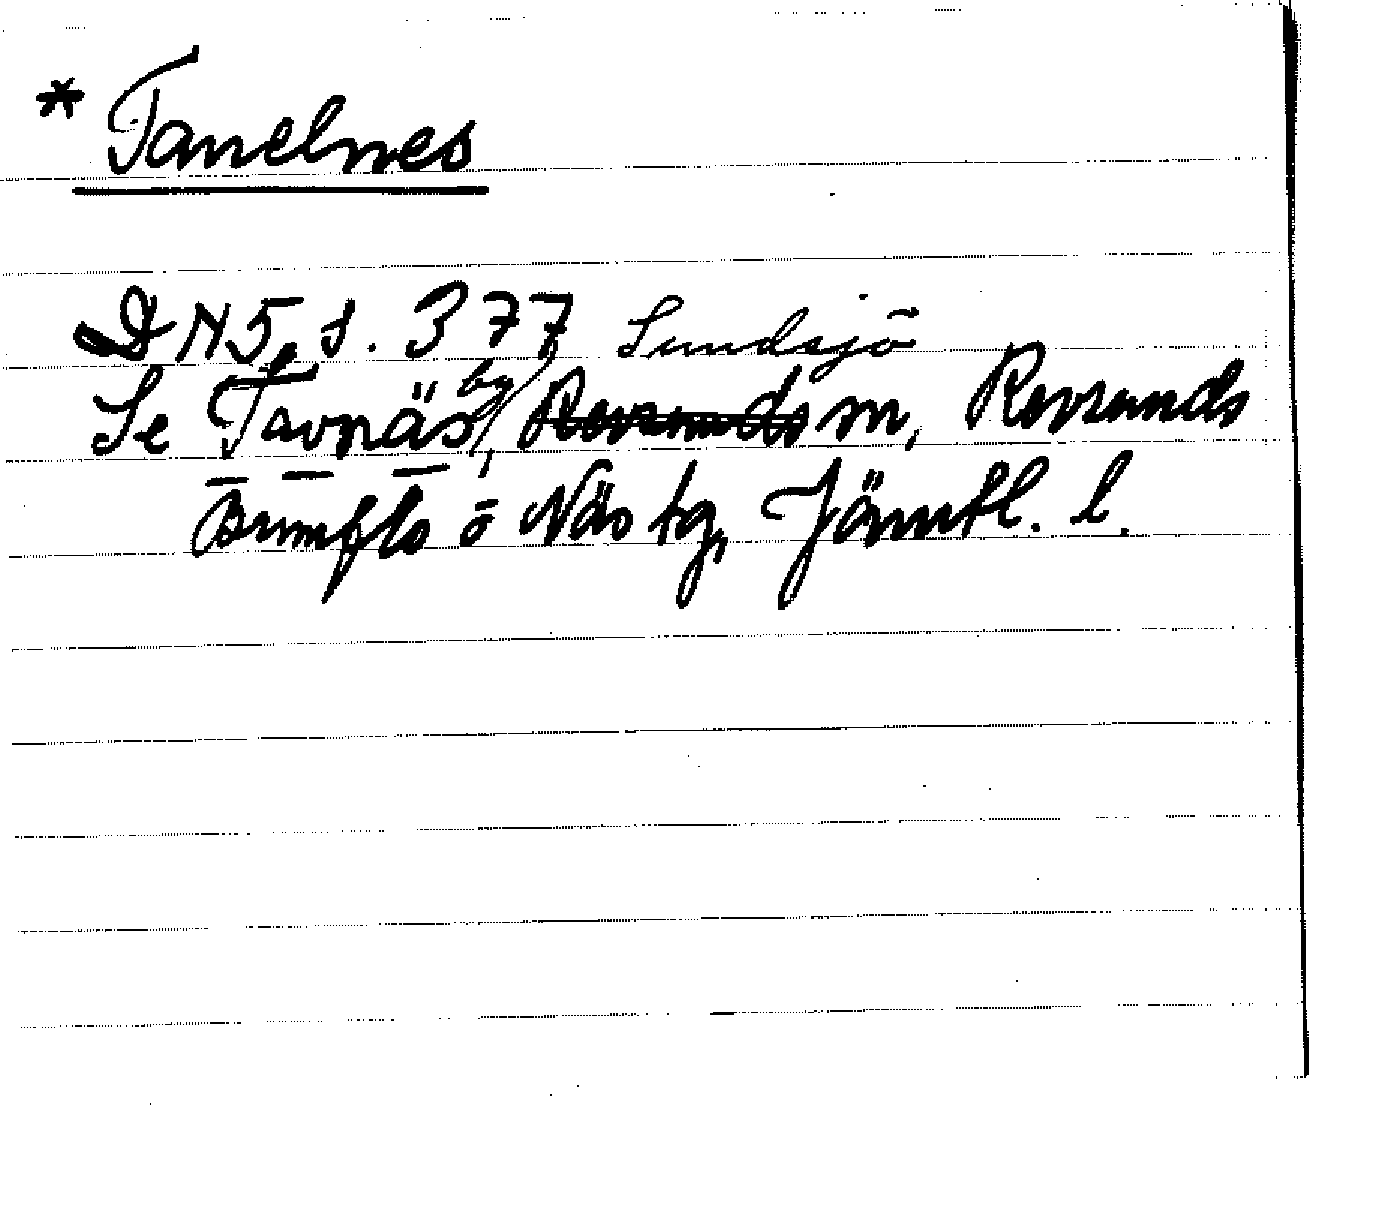 * Tanelnes
DN5, s. 377 Sundsjö
Se Tavnäs by, ~~Revsunds~~ sn, Revsunds
Brunflo o Näs tg, Jämtl. l.